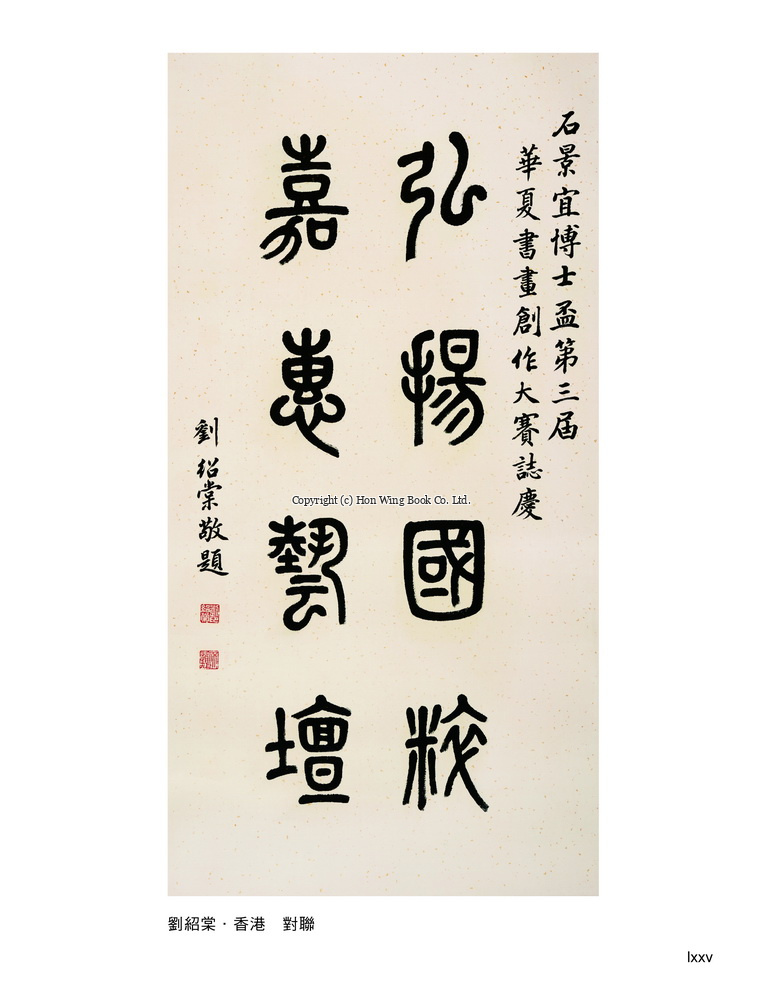 石景宜博士盃第三屆
華夏書畫創作大賽誌慶
弘揚國粹
嘉惠藝壇
劉紹棠敬題
Copyright (c) Hon Wing Book Co. Ltd.
劉紹棠 · 香港　對聯
lxxv